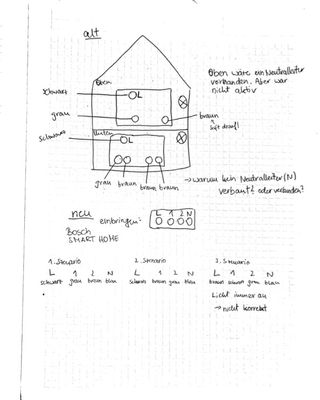 alt
Oben wäre ein Neutralleiter
vorhanden. Aber war
nicht aktiv
Oben
schwarz
L
grau
braun
Saft drauf!
schwarz
Unten
L
grau braun braun braun
→ warum kein Neutralleiter (N)
verbaut? oder verbunden?
neu
einbringen:
L 1 2 N
Bosch
SMART HOME
1. Szenario
L 1 2 N
schwarz grau braun blau
2. Szenario
L 1 2 N
schwarz braun grau blau
3. Szenario
L 1 2 N
braun schwarz grau blau
Licht immer an
→ nicht korrekt